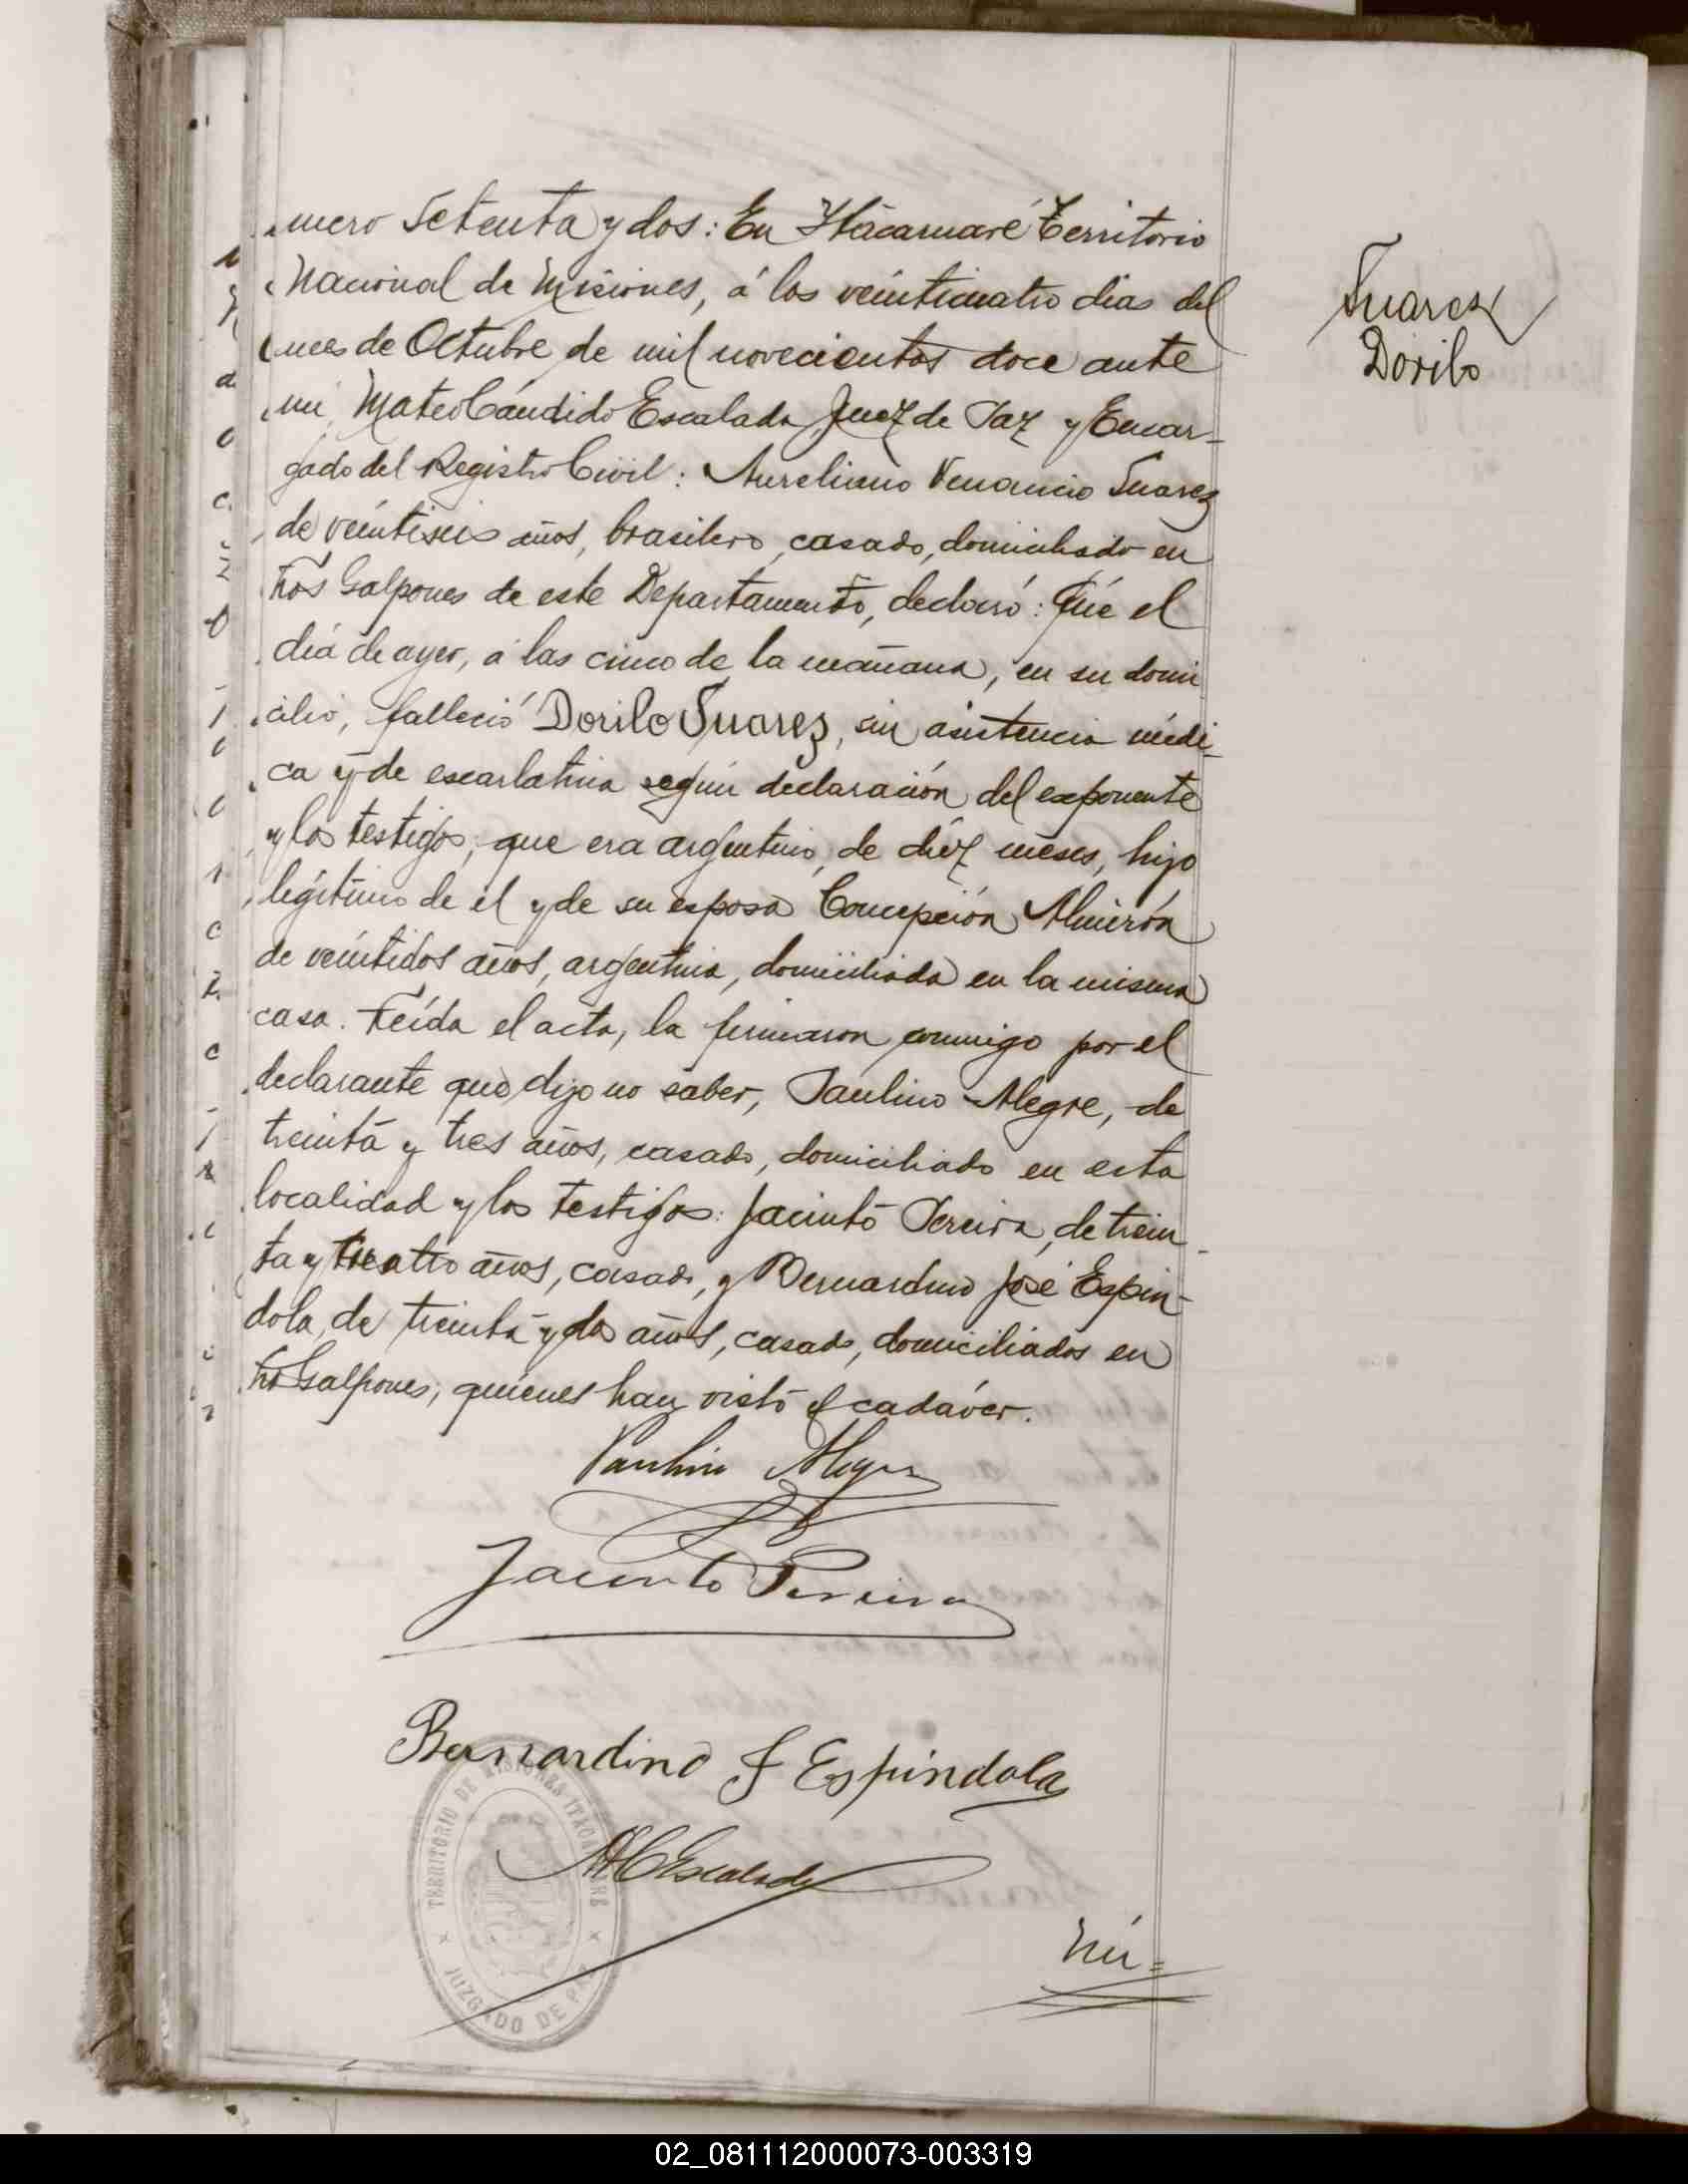 mero Setenta y dos: En Itacaruaré Territorio
Nacional de Misiones, á los veinticuatro dias del
mes de Octubre de mil novecientos doce ante
mi, Mateo Cándido Escalada Juez de Paz y Encar-
gado del Registro Civil: Aureliano Venancio Suarez
de veintiseis años, brasilero, casado, domiciliado en
Tres Galpones de este Departamento, declaró: Que el
dia de ayer, á las cinco de la mañana, en su domi
cilio, falleció Dorilo Suarez, sin asistencia médi-
ca y de escarlatina según declaración del exponente
y los testigos; que era argentino, de diez meses, hijo
legítimo de el y de su esposa Concepción Almirón
de veintidos años, argentina, domiciliada en la misma
casa. Leída el acta, la firmaron conmigo por el
declarante que dijo no saber, Paulino Alegre, de
treinta y tres años, casado, domiciliado en esta
localidad y los testigos: Jacinto Pereira, de trein
ta y cuatro años, casado, y Bernardino José Espin-
dola, de treinta y dos años, casado, domiciliados en
Galpones; quienes han visto el cadáver.
Paulino Alegre
Jacinto Pereira
Bernardino J Espindola
M C Escalada
TERRITORIO DE MISIONES ITACARUARÉ
JUZGADO DE PAZ
Nú=
Suarez
Dorilo
02_081112000073-003319